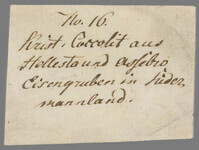 No. 16.
Krist. Coccolit aus
Hellesta und Assebro
Eisengruben in Süder,
mannland.